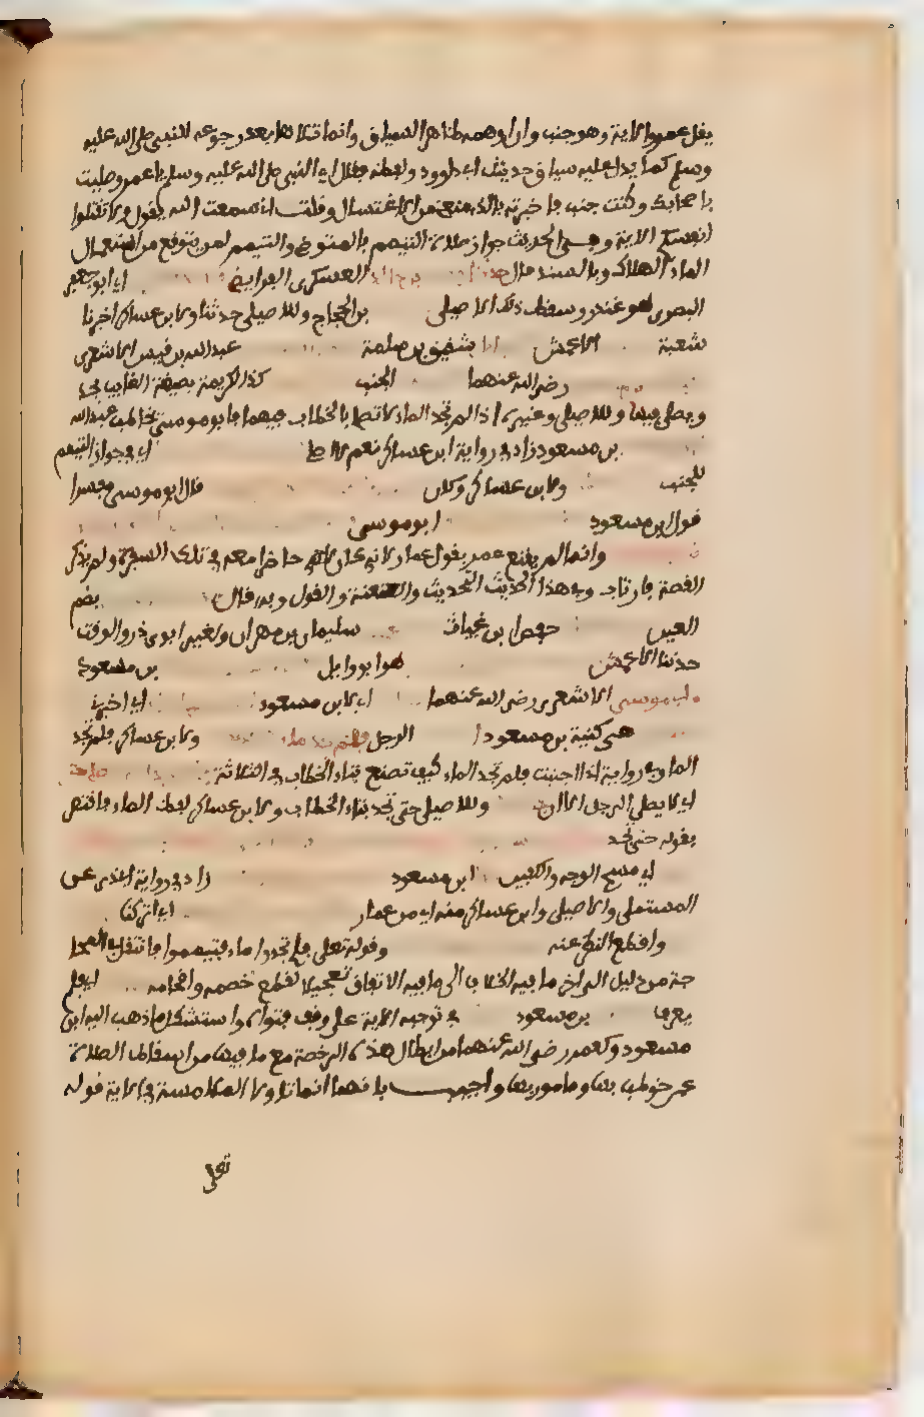 يقل عمرو الاية وهو جنب وان اوهمه ظاهر السياق وانما تلاها بعد رجوعه للنبي صلى الله عليه
وسلم كما يدل عليه سياق حديث ابي داوود ولفظه فقال اي النبي صلى الله عليه وسلم يا عمرو صليت
باصحابك وكنت جنبا فاخبرته بالذي منعني من الاغتسال وقلت اني سمعت الله يقول ولا تقتلوا
انفسكم الاية وفي الحديث جواز صلاة التيمم بالمتوضي والتيمم لمن يتوقع من استعمال
الماء الهلاك وبالسند قال حدثنا العسكري الفرايضي اي ابو جعفر
البصري هو غندر وسقط ذلك للاصيلي بن الحجاج وللاصيلي حدثنا ولابن عساكر اخبرنا
شعبة الاعمش شقيق بن سلمة عبد الله بن قيس الاشعري
رضي الله عنهما الجنب كذا لكريمة بصيغة الغايب تجد
ويصلي فيها وللاصيلي وغيره اذا لم تجد الماء لا تصل بالخطاب فيهما فابو موسى يخاطب عبد الله
بن مسعود زاد في رواية ابن عساكر نعم لا اي في جواز التيمم
للجنب ولابن عساكر وكان قال ابو موسى مفسرا
قول ابن مسعود ابو موسى
وانما لم يقنع عمر بقول عمار لانه كان حاضرا معه في تلك السفرة ولم يذكر
القصة فارتاب وفي هذا الحديث التحديث والعنعنة والقول وبه قال بضم
العين حفص ابن غياث سليمان بن مهران ولغير ابوي ذر والوقت
حدثنا الاعمش هو ابو وايل بن مسعود
وابي موسى الاشعري رضي الله عنهما اي لابن مسعود اي اخبرني
هي كنية بن مسعود الرجل فلم يجد ماء ولابن عساكر فلم تجد
الماء وفي رواية اذا اجنبت فلم تجد الماء كيف تصنع بتاء الخطاب في الثلاثة
اي لا يصلي الرجل الى ان وللاصيلي حتى تجد بتاء الخطاب ولابن عساكر لفظ الماء فاقتصر
بقوله حتى تجد
اي مسح الوجه والكفين ابن مسعود زاد في رواية عن
المستملي والاصيلي وابن عساكر منه اي من عمار اي اتركنا
واقطع النظر عنه وقوله تعلى فلم تجدوا ماء فتيمموا فانتقل في المحا
جة من دليل الى اخر مما فيه الخلاف الى ما فيه الاتفاق تعجيلا لقطع خصمه وافحامه اي فلم
يعرف بن مسعود في توجيه الاية على وفق فتواه واستشكل ما ذهب اليه ابن
مسعود وكعمر رضي الله عنهما من ابطال هذه الرخصة مع ما فيها من اسقاط الصلاة
عمن خوطب بها ومامور بها واجيب بانهما انما تاولا الملامسة في الاية قوله
تعلى